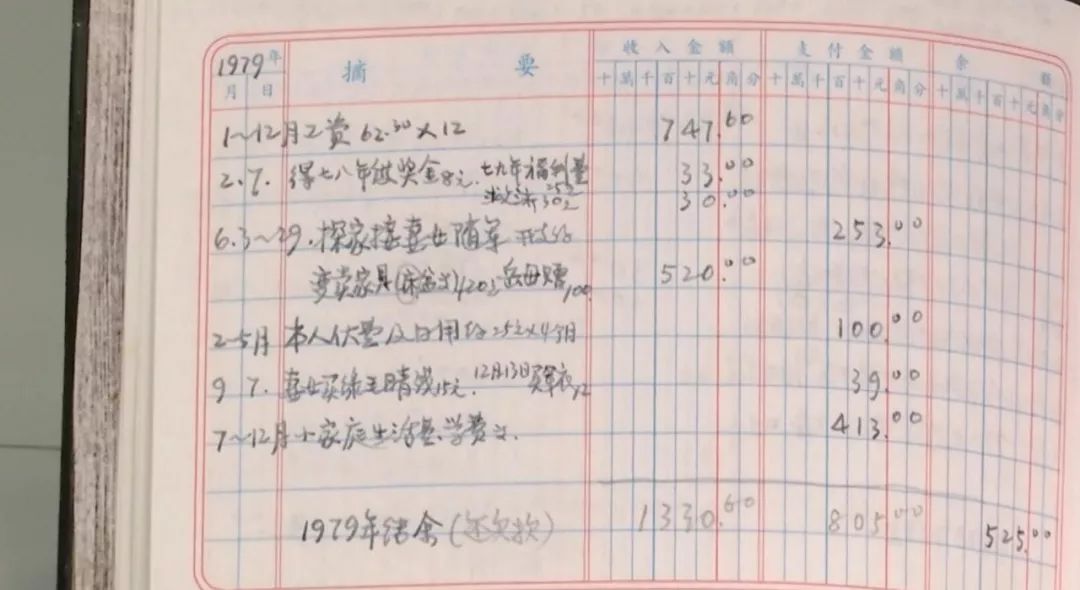 1979年 摘要 收入金額 支付金額 余額
月 日 十萬千百十元角分 十萬千百十元角分 十萬千百十元角分
1~12月工资62.30×12 747.60
2.7. 得七八年度奖金8元.七九年福利費25元 33.00
30元 30.00
6.3~29.探家接喜女随军 253.00
变卖家具(床)420元岳母赠100 520.00
2-5月 本人伙费及日用约25元×4个月 100.00
9 7. 喜女买 15元.12月13日买军衣12 39.00
7~12月小家庭生活费.学费 413.00
1979年结余(还欠款) 1330.60 805.00 525.00